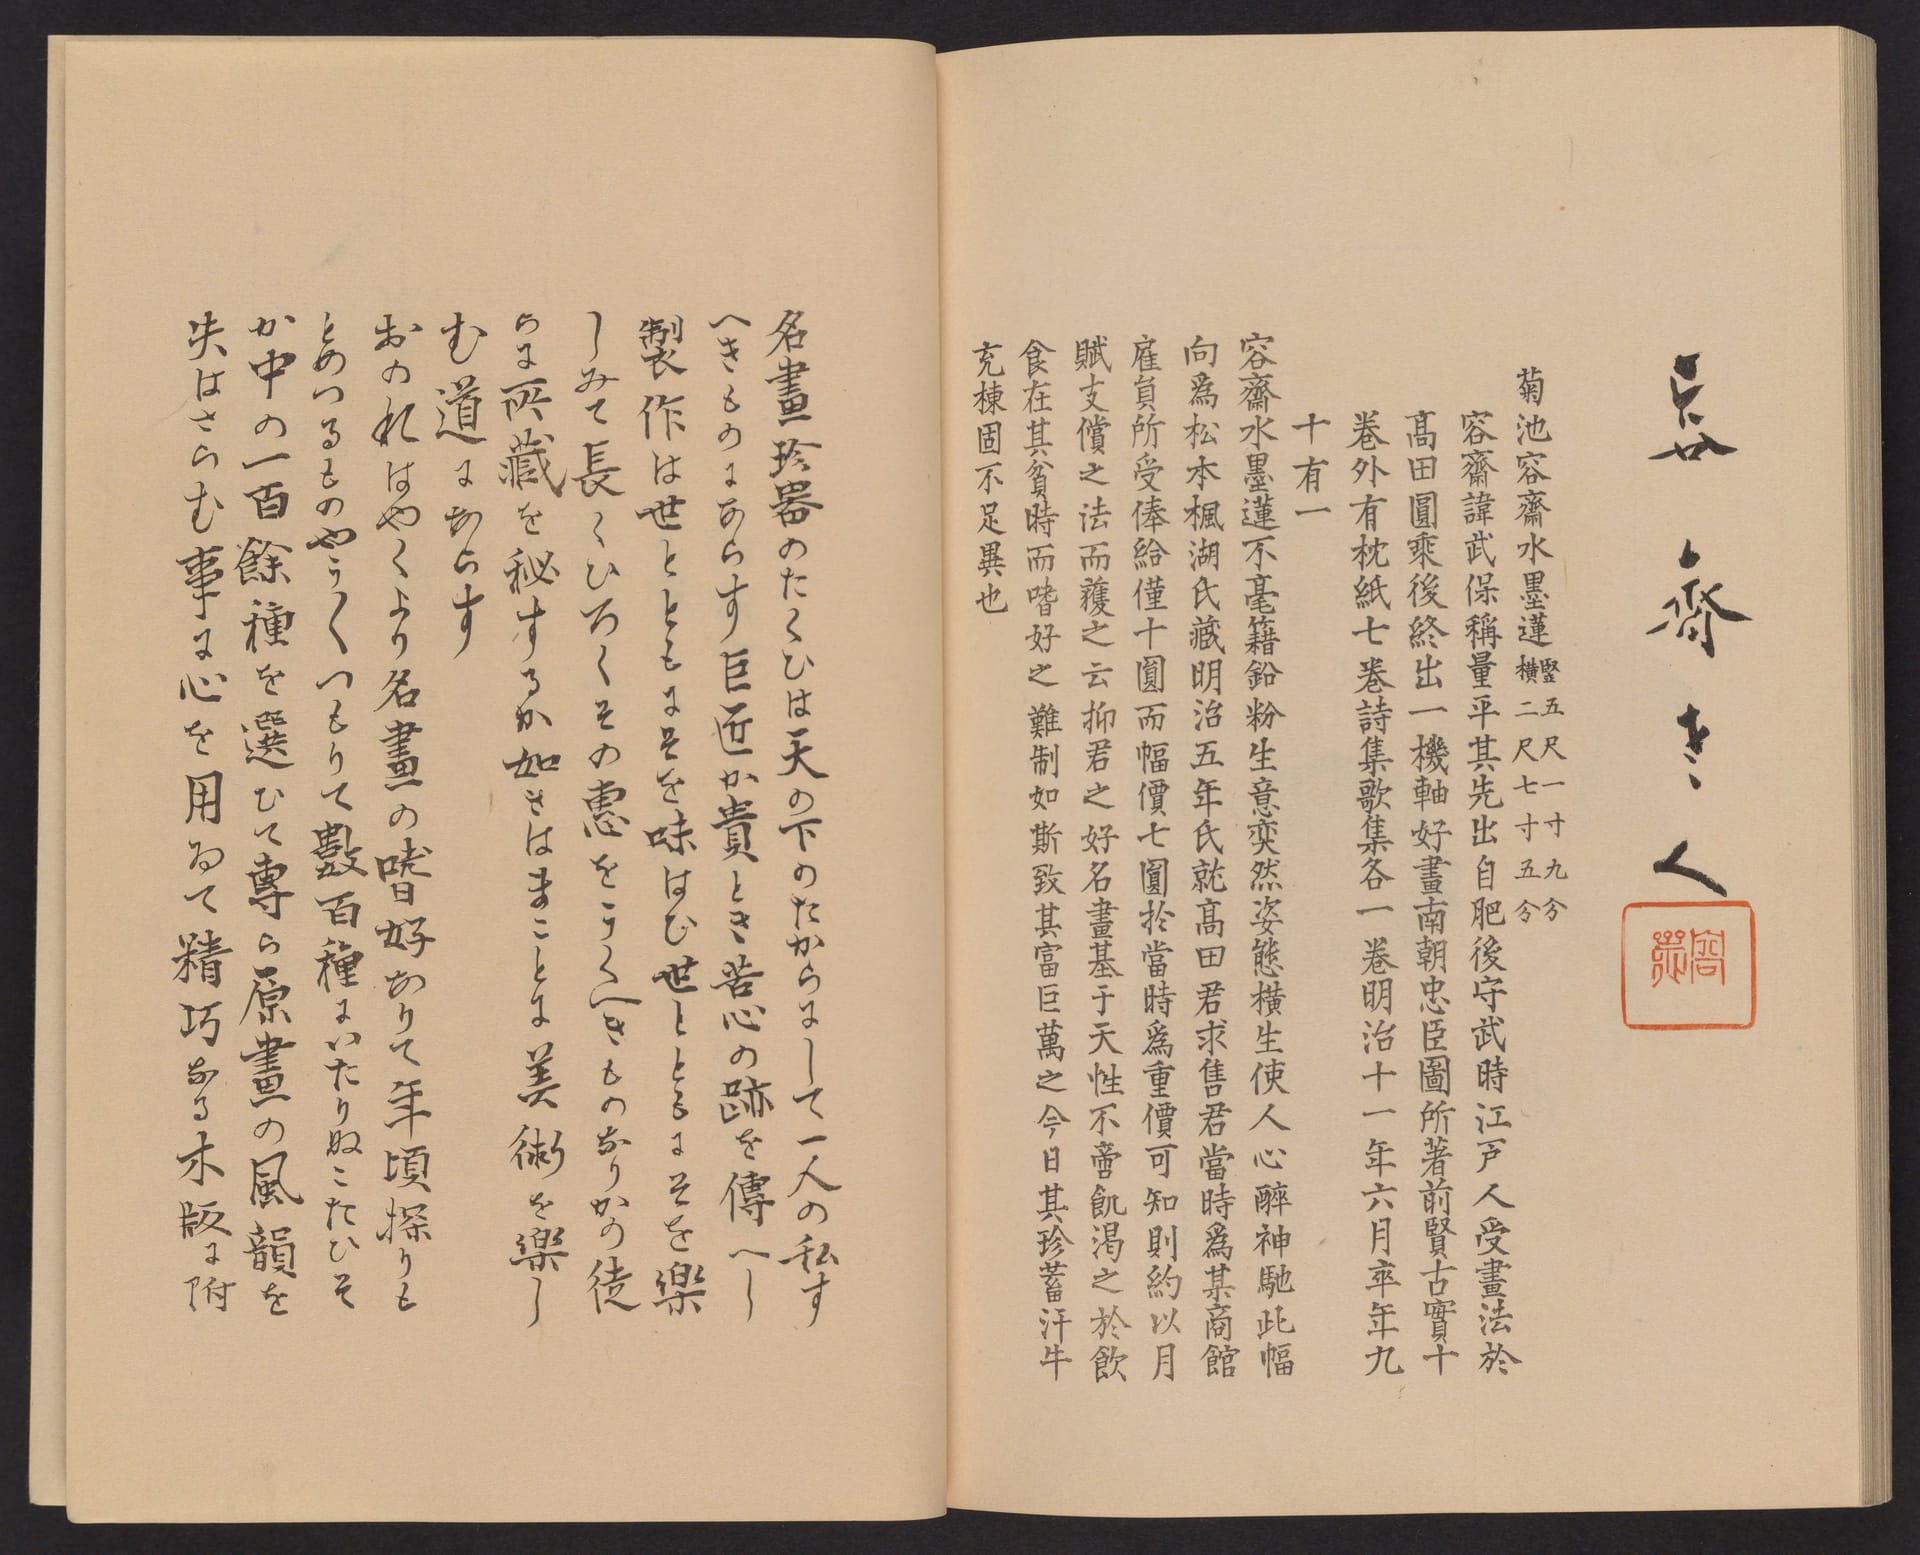 容齋老人
容齋
菊池容齋水墨蓮 竪五尺一寸九分 横二尺七寸五分
容齋諱武保稱量平其先出自肥後守武時江戸人受畫法於
髙田圓乘後終出一機軸好畫南朝忠臣圖所著前賢古實十
卷外有枕紙七卷詩集歌集各一卷明治十一年六月卒年九
十有一
容齋水墨蓮不毫籍鉛粉生意奕然姿態横生使人心醉神馳此幅
向爲松本楓湖氏藏明治五年氏就髙田君求售君當時爲某商館
雇員所受俸給僅十圓而幅價七圓於當時爲重價可知則約以月
賦支償之法而獲之云抑君之好名畫基于天性不啻飢渇之於飲
食在其貧時而嗜好之難制如斯致其富巨萬之今日其珍蓄汗牛
充棟固不足異也
名畫珍器のたくひは天の下のたからにして一人の私す
へきものにあらす巨匠か貴とき苦心の跡を傳へし
製作は世とともにそを味はひ世とともにそを樂
しみて長くひろくその惠をうくへきものなりかの徒
らに所藏を秘するか如きはまことに美術を樂し
む道にあらす
おのれはやくより名畫の嗜好ありて年頃探りも
とめつるものやうくつもりて數百種にいたりぬこたひそ
か中の一百餘種を選ひて専ら原畫の風韻を
失はさらむ事に心を用ゐて精巧なる木版に附